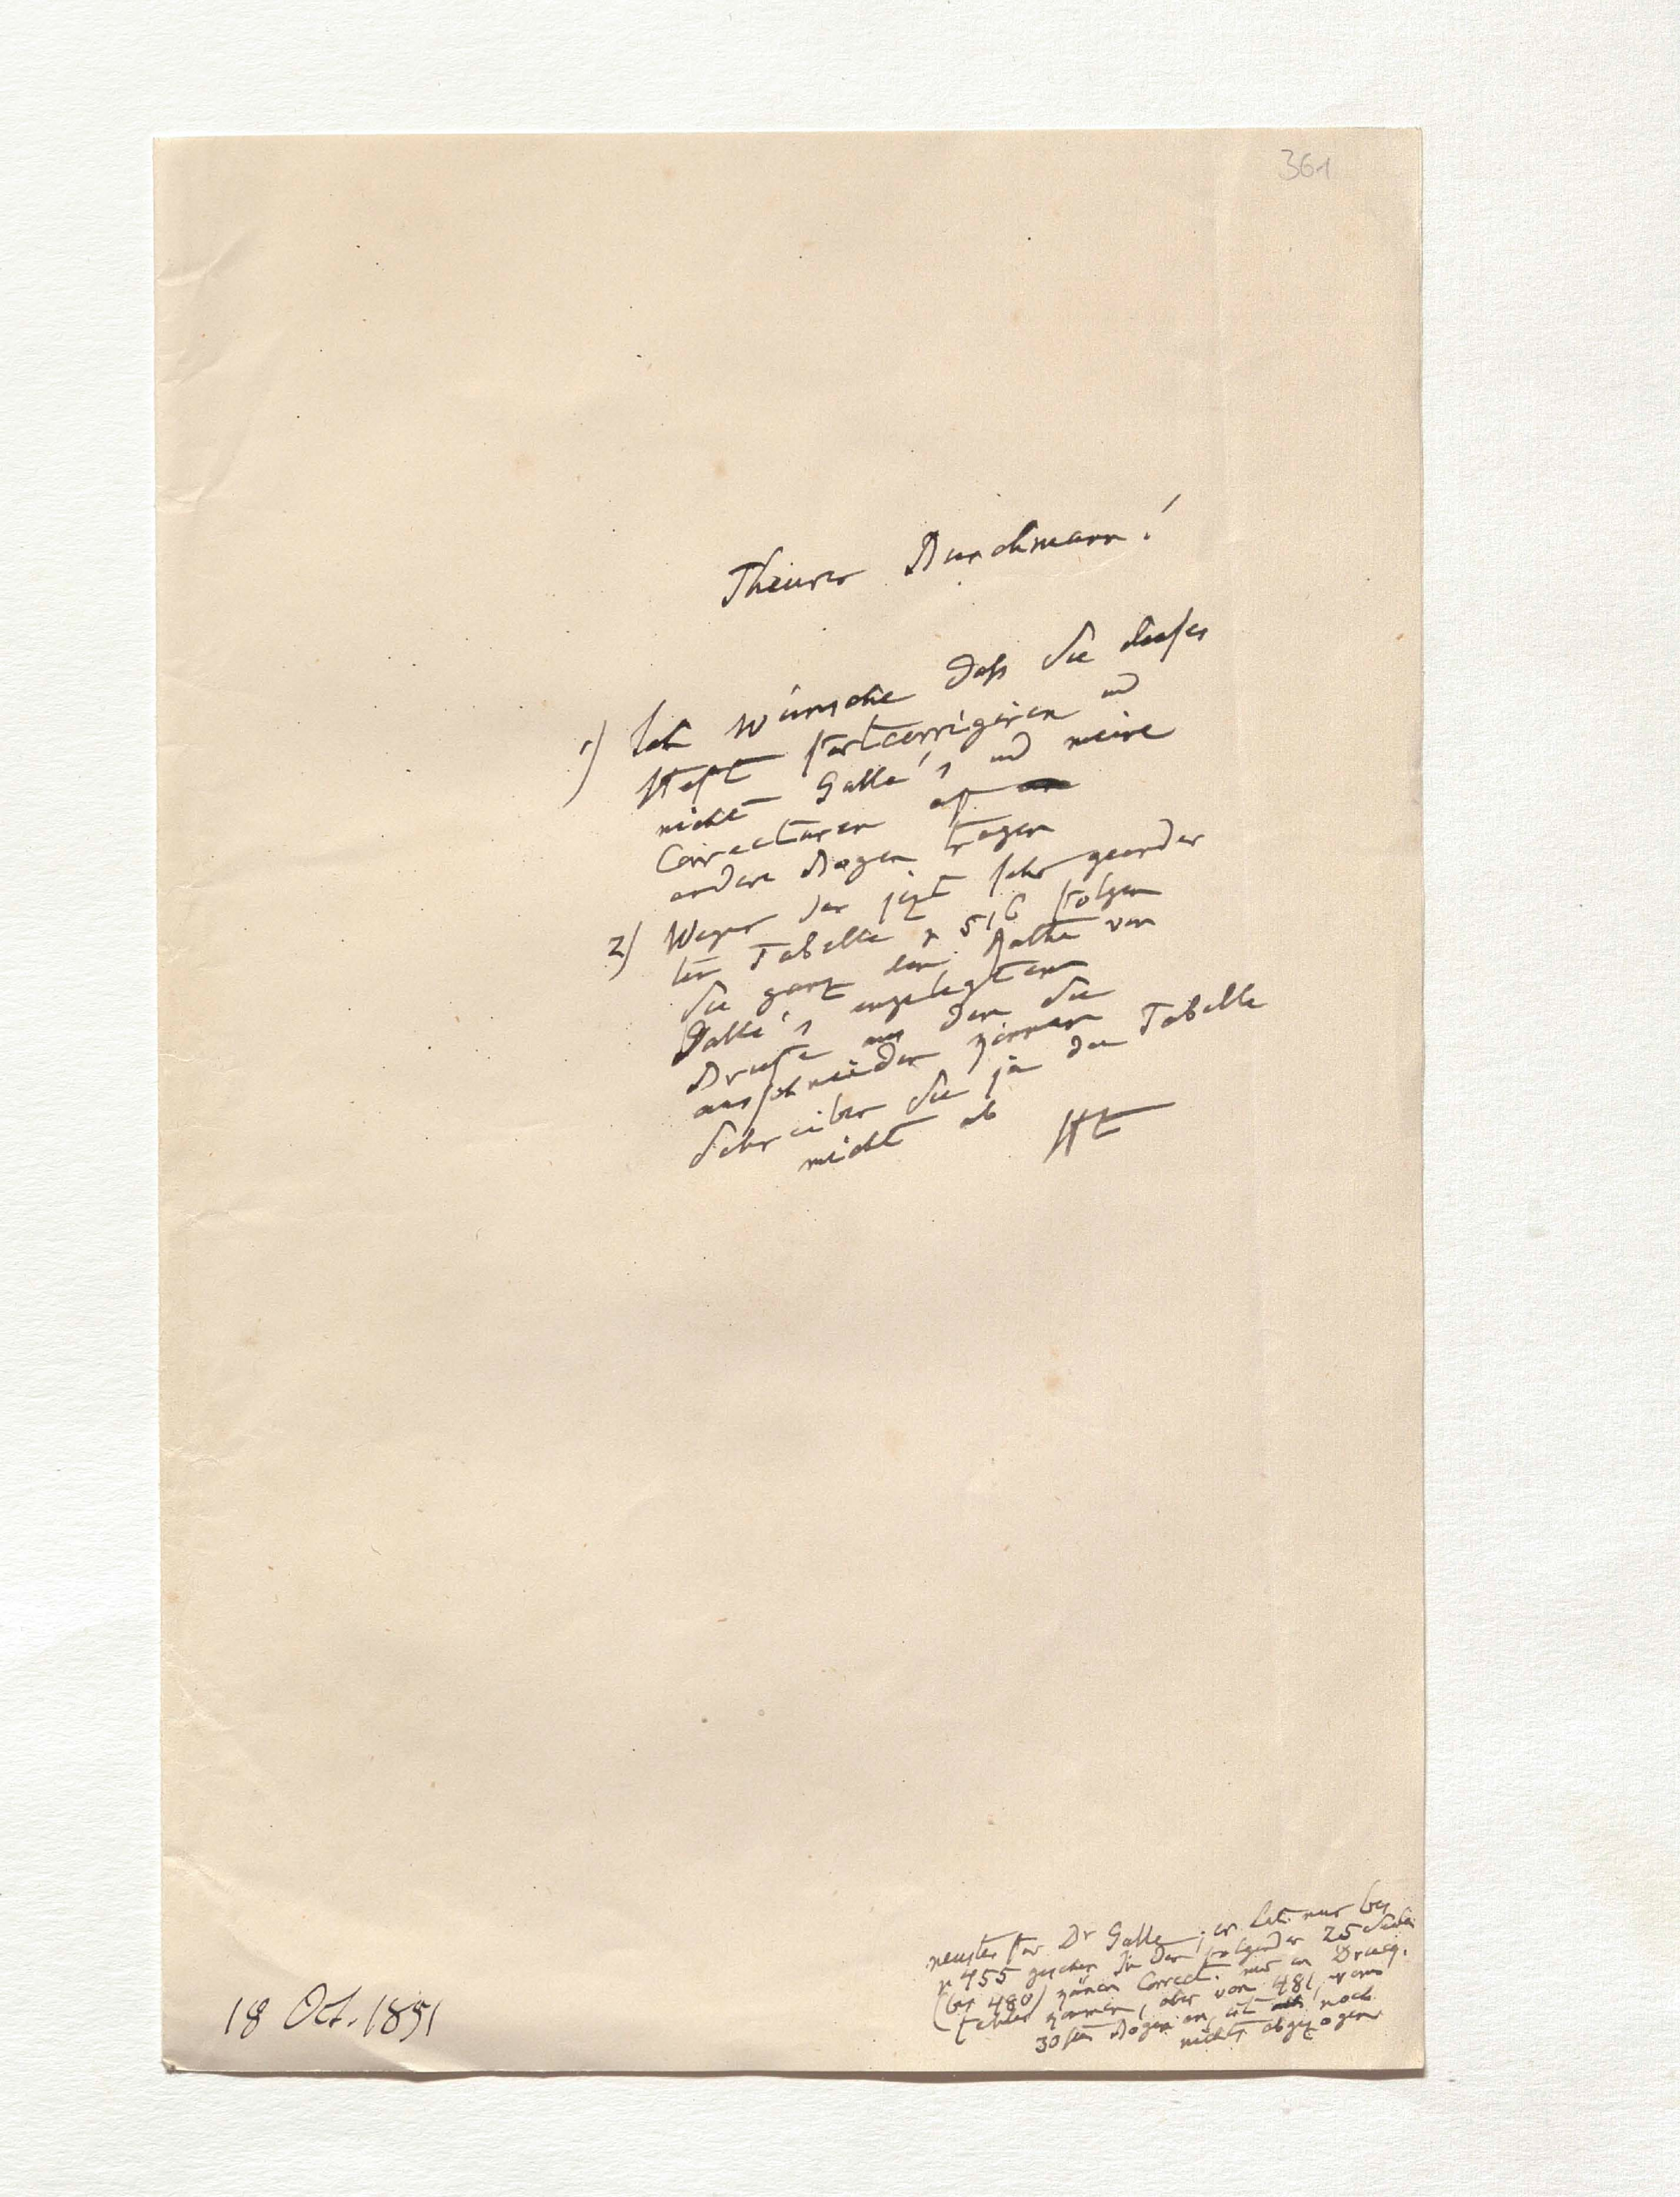 361
Theurer Buschmann!
1) Ich wünsche daß Sie dieses
Heft fortcorrigiren und
nicht Galle's und meine
Correcturen auf
andere Bogen tragen
2) Wegen der jezt sehr geänder
ten Tabelle p 516 folgen
Sie ganz dem Rathe von
Galle's eingelegtem
Briefe aus dem Sie
ausschneiden können
Schreiben Sie ja die Tabelle
nicht ab HT
Dr Galle; er hat nur bis
p 455 gesehen In den folgenden 25 Seiten
(bis 480) können Correct. nur in Druck-
fehler kommen, aber von 481, vom
30sten Bogen an, ist noch
nichts abgezogen
18 Oct. 1851